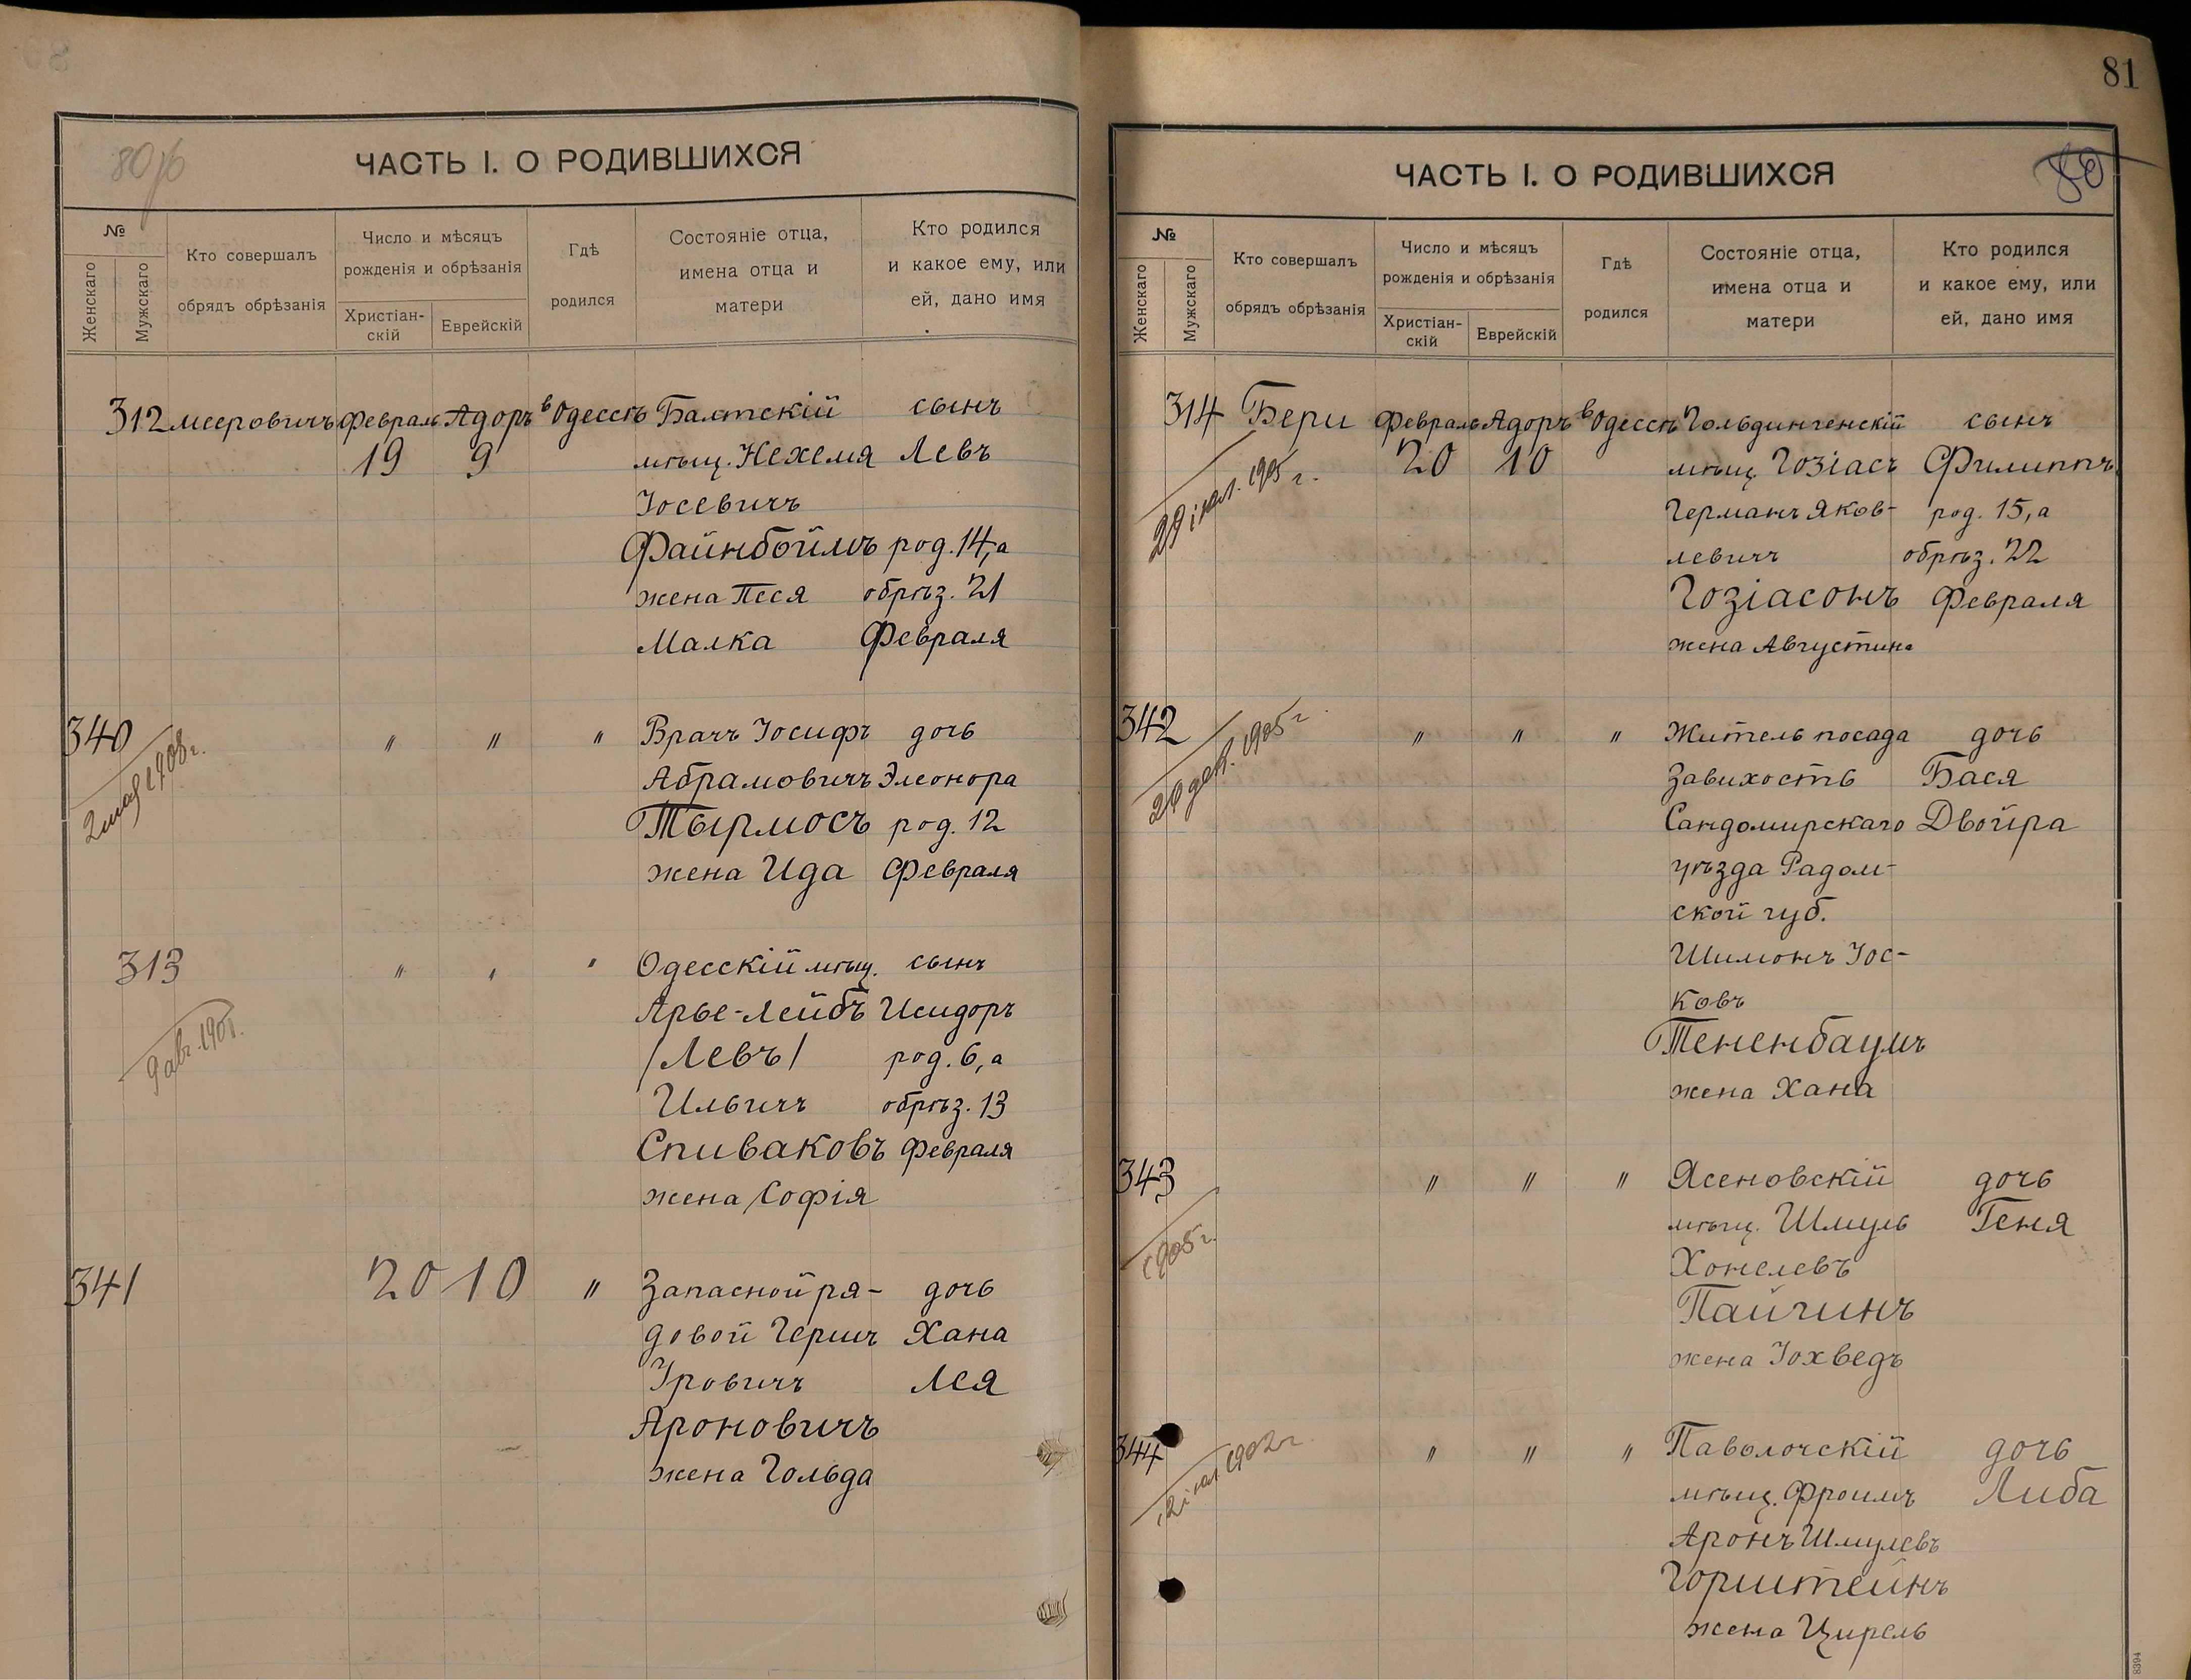 80 об
ЧАСТЬ I. О РОДИВШИХСЯ
№
Женскаго
Мужскаго
Кто совершалъ
обрядъ обрѣзанія
Число и мѣсяцъ
рожденія и обрѣзанія
Христіан-
скій
Еврейскій
Гдѣ
родился
Состояніе отца,
имена отца и
матери
Кто родился
и какое ему, или
ей, дано имя
312 Мееровичъ Февраль Адоръ в Одессѣ Балтскій сынъ
19 9 мѣщ. Нехемя Левъ
Іосевичъ
Файнбоймъ род. 14, а
жена Песя обрѣз. 21
Малка Февраля
340 " " " Врачъ Іосифъ дочь
2 мая 1908 г.
Абрамовичъ Элеонора
Тырмосъ род. 12
жена Ида Февраля
313 " " " Одесскій мѣщ. сынъ
9 авг.
Арье-Лейбъ Исидоръ
/Левъ/ род. 6, а
Ильичъ обрѣз. 13
Спиваковъ Февраля
жена Софія
341 20 10 " Запасной ря- дочь
довой Герш Хана
Іровичъ Лея
Ароновичъ
жена Гольда
81
ЧАСТЬ I. О РОДИВШИХСЯ
80
№
Женскаго
Мужскаго
Кто совершалъ
обрядъ обрѣзанія
Число и мѣсяцъ
рожденія и обрѣзанія
Христіан-
скій
Еврейскій
Гдѣ
родился
Состояніе отца,
имена отца и
матери
Кто родился
и какое ему, или
ей, дано имя
314 Бери Февраль Адоръ в Одессѣ Гольдингенскій сынъ
29 1905 г.
20 10 мѣщ. Гозіасъ Филиппъ
Германъ Яков- род. 15, а
левичъ обрѣз. 22
Гозіасонъ Февраля
жена Августина
342 " " " Житель посада дочь
20 дек. 1905 г
Завихость Бася
Сандомирскаго Двойра
уѣзда Радом-
ской губ.
Шимонъ Іос-
ковъ
Тененбаумъ
жена Хана
343 " " " Ясеновскій дочь
1905 г.
мѣщ. Шмуль Геня
Хонелевъ
Пайчинъ
жена Іохведъ
344 " " " Паволочскій дочь
мѣщ. Фроимъ Либа
Аронъ Шмулевъ
Горштейнъ
жена Цирель
8394